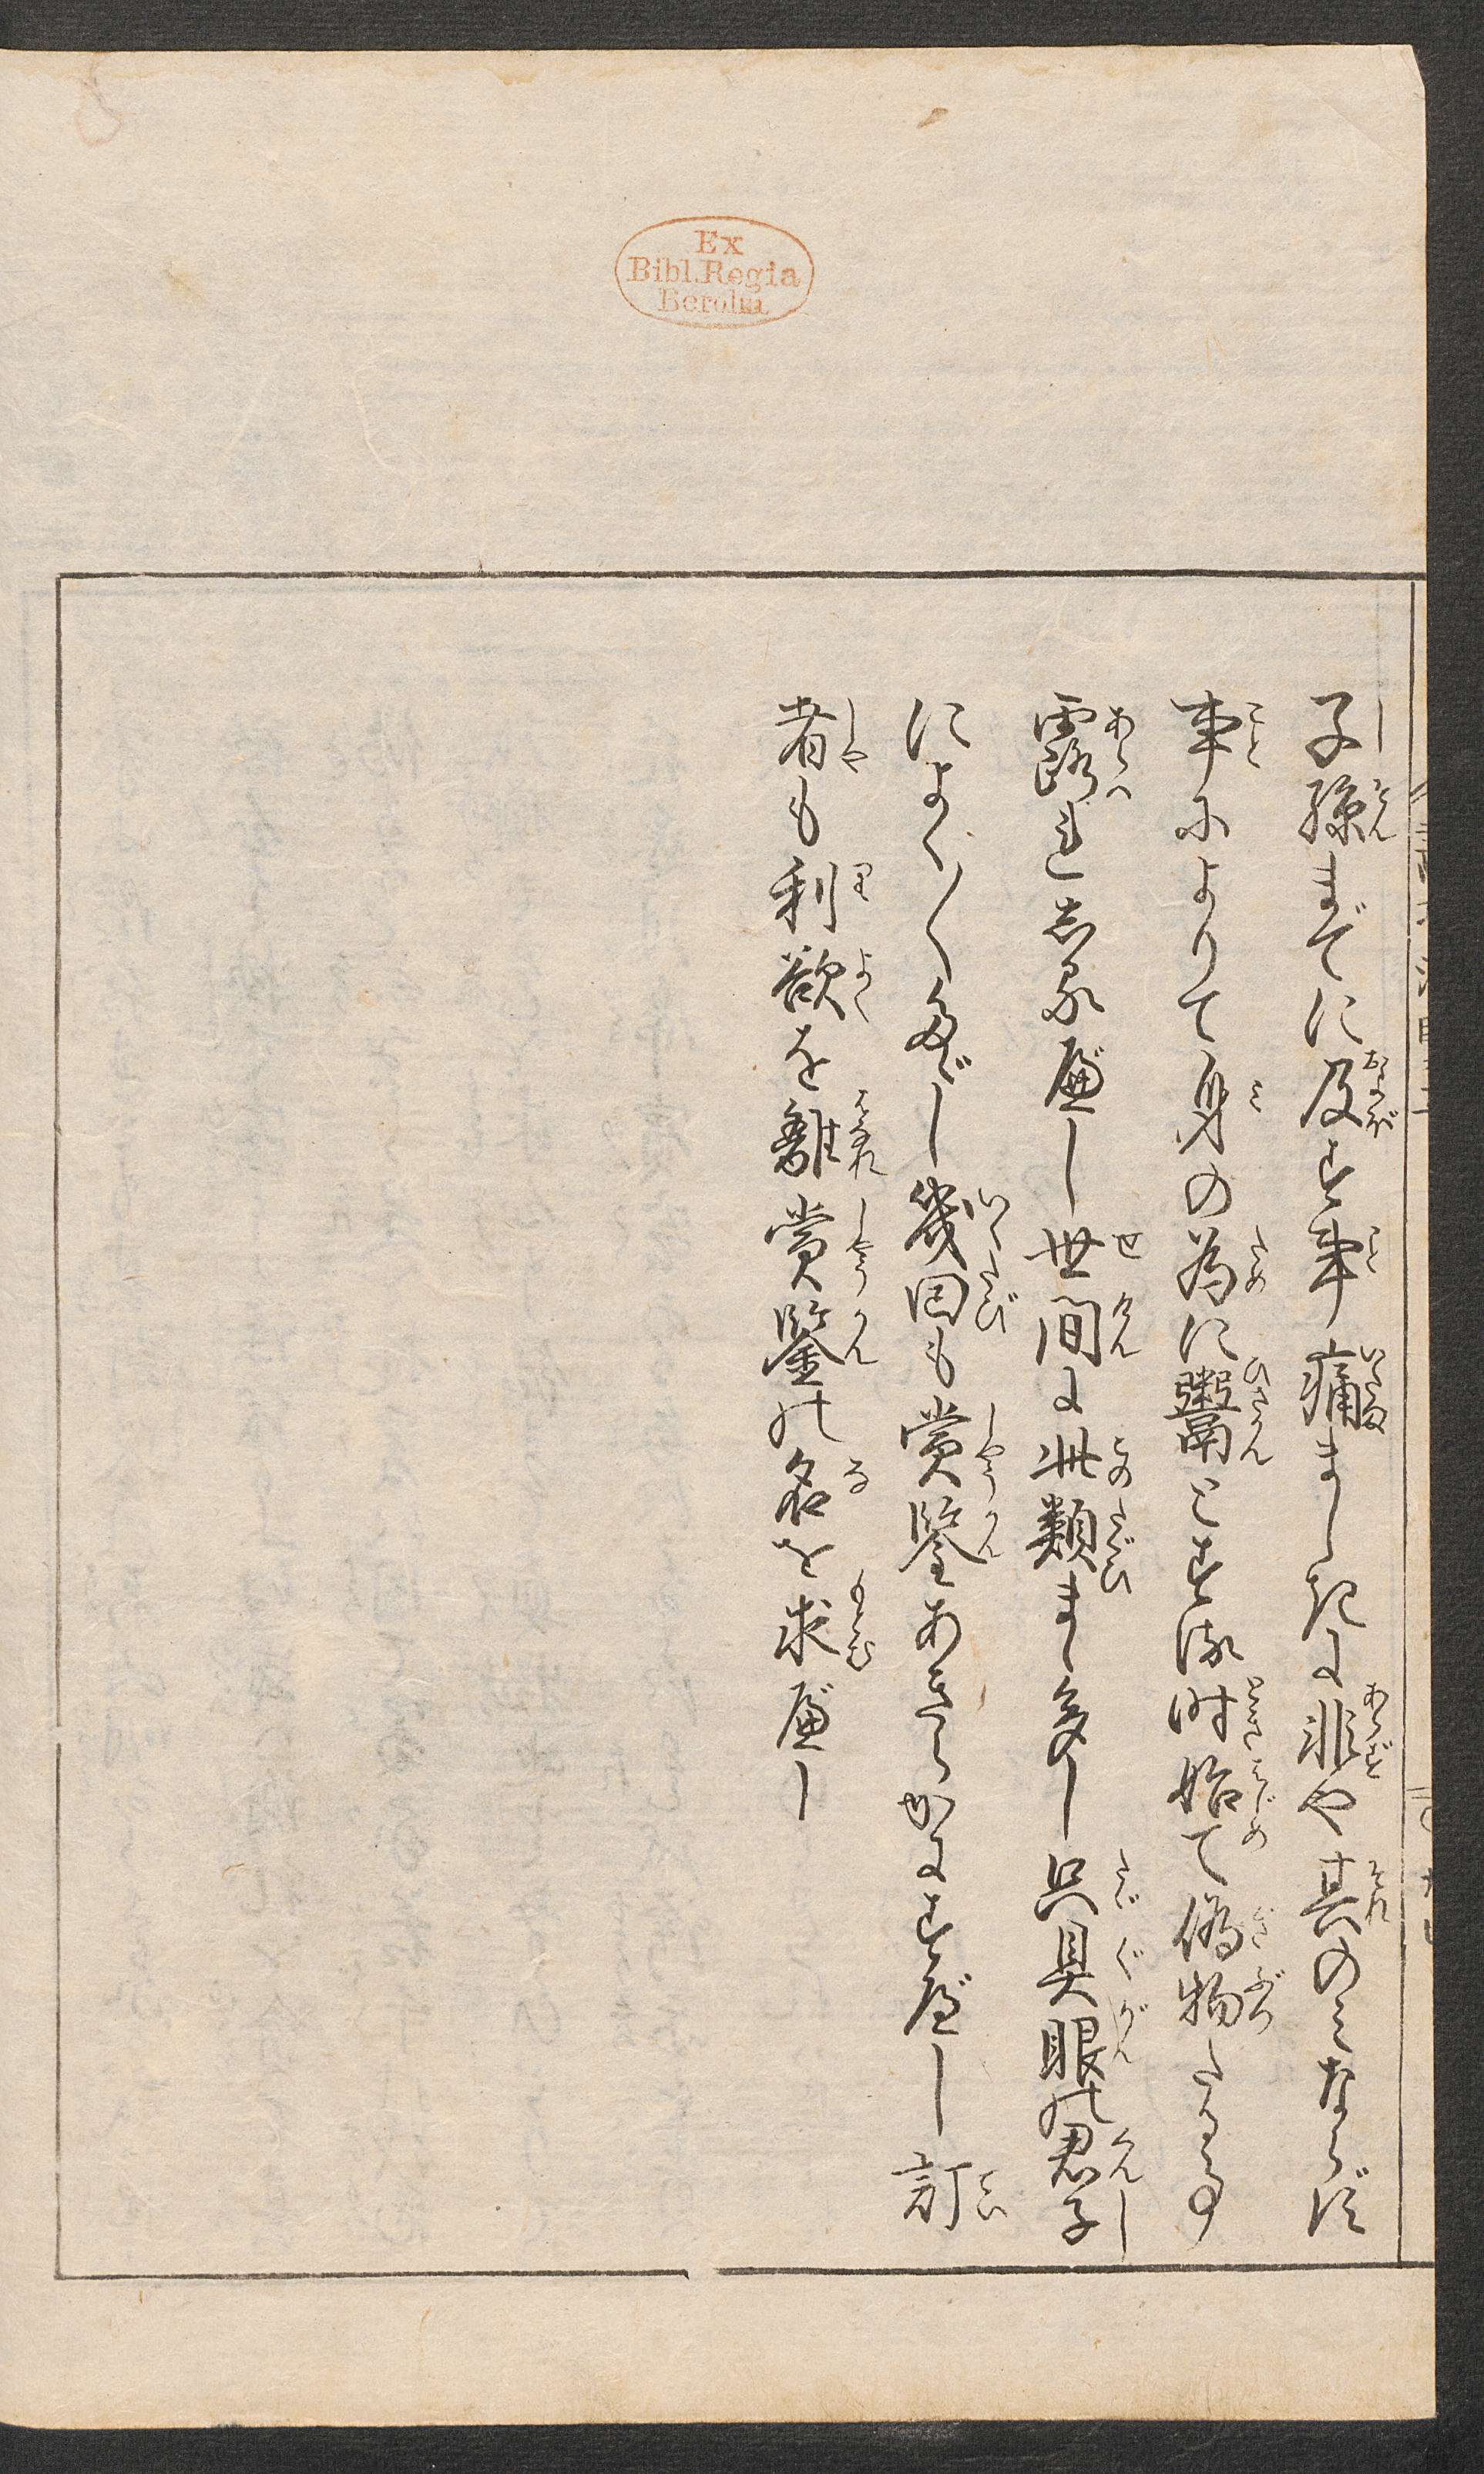 Ex
Bibl. Regia
Berolin.
子孫までに及す事痛ましきに非や其のみならず
事によりて身の為に鬻とする時始て偽物たる事
露れしるべし世間に此類まゝ多し只具眼の君子
によく〳〵たゞし幾回も賞鑒あきらかにすべし訂
者も利欲を離賞鑒の名を求べし